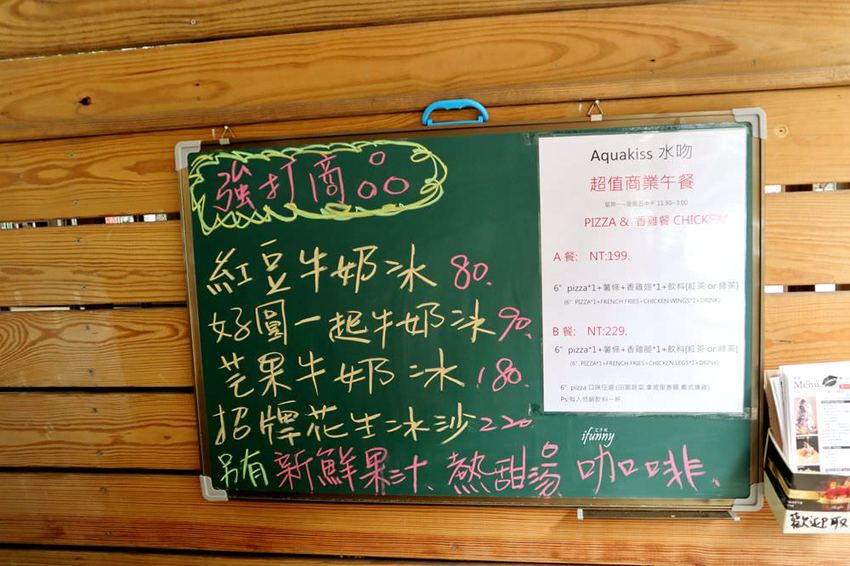 強打商品
紅豆牛奶冰 80.
好圓一起牛奶冰 90.
芒果牛奶冰 180.
招牌花生冰沙 220
另有 新鮮果汁、熱甜湯、咖啡.
Aquakiss 水吻
超值商業午餐
11:30~3:00
PIZZA & 香雞餐 CHICKEN
A 餐: NT:199.
6" pizza*1+薯條+香雞翅*1+飲料(紅茶 or 綠茶)
(6" PIZZA*1+FRENCH FRIES+CHICKEN WINGS*1+DRINK)
B 餐: NT:229.
6" pizza*1+薯條+香雞腿*1+飲料(紅茶 or 綠茶)
(6" PIZZA*1+FRENCH FRIES+CHICKEN LEGS*1+DRINK)
6" pizza 口味任選
Ps:每人低銷飲料一杯.
ifunny
Menu
歡迎取